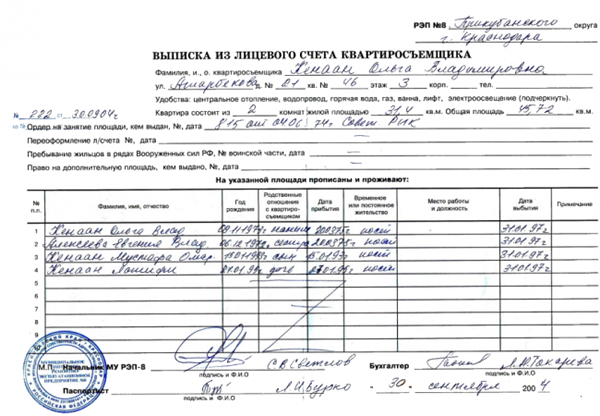 РЭП №8 Прикубанского округа
г. Краснодара
ВЫПИСКА ИЗ ЛИЦЕВОГО СЧЕТА КВАРТИРОСЪЕМЩИКА
Фамилия, и., о. квартиросъемщика Кенаан Ольга Владимировна
ул. Атарбекова № 21 кв. № 46 этаж 3 корп. тел.
Удобства: центральное отопление, водопровод, горячая вода, газ, ванна, лифт, электроосвещение (подчеркнуть).
№ 222 от 30.09.04г. Квартира состоит из 2 комнат жилой площадью 31,4 кв.м. Общая площадь 45,72 кв.м.
Ордер на занятие площади, кем выдан, №, дата 815 от 04.06.74г Совет РИК
Переоформление л/счета №, дата
Пребывание жильцов в рядах Вооруженных сил РФ, № воинской части, дата
Право на дополнительную площадь, кем выдано, №, дата
На указанной площади прописаны и проживают:
№ п.п. Фамилия, имя, отчество Год рождения Родственные отношения с квартиро-съемщиком Дата прибытия Временное или постоянное жительство Место работы и должность Дата выбытия Примечание
1 Кенаан Ольга Влад пост 31.01.97г
2 Алексеева Евгения Влад сестра пост 31.01.97г
3 Кенаан Мустафа Омар сын пост 31.01.97г
4 Кенаан дочь пост 31.01.97г
5
6
7
8
9
10
М.П. Начальник МУ РЭП-8 С.В.Светлов Бухгалтер Л.Н.Токарева
подпись и Ф.И.О подпись и Ф.И.О
Паспортист Л.И.Бурко - 30 - сентября 2004
подпись и Ф.И.О